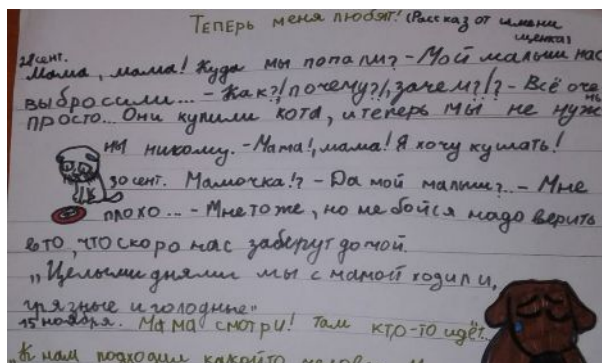 Теперь меня любят! (Рассказ от имени щенка)
28 сент.
Мама, мама! Куда мы попали? - Мой малыш нас
выбросили... - Как?! почему?!, зачем?!? - Всё очень
просто... Они купили кота, и теперь мы не нуж
ны никому. - Мама!, мама! Я хочу кушать!
30 сент. Мамочка!? - Да мой малыш?.. - Мне
плохо... - Мне тоже, но не бойся надо верить
в то, что скоро нас заберут домой.
„Целыми днями мы с мамой ходили,
грязные и голодные"
15 ноября. Мама смотри! Там кто-то идёт.
„К нам подходил какойто